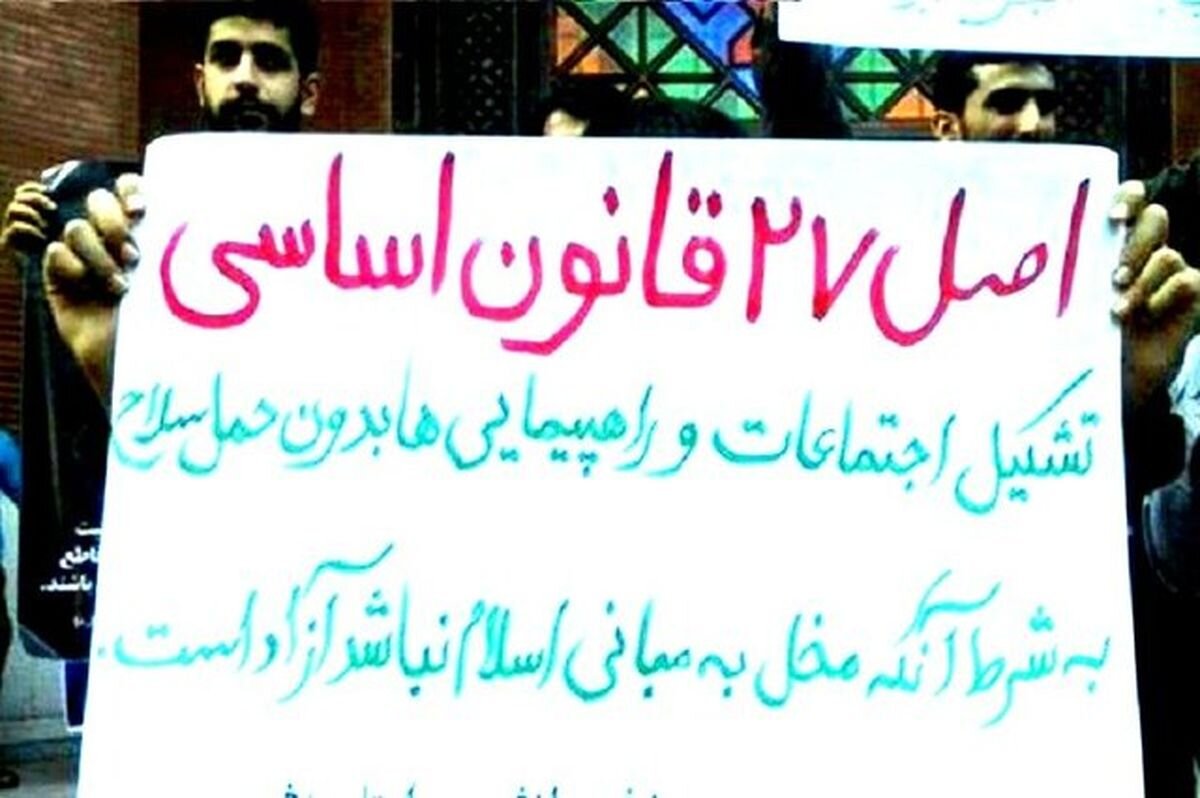 اصل ۲۷ قانون اساسی
تشکیل اجتماعات و راهپیمایی ها بدون حمل سلاح
به شرط آنکه مخل به مبانی اسلام نباشد آزاد است.
باشند.